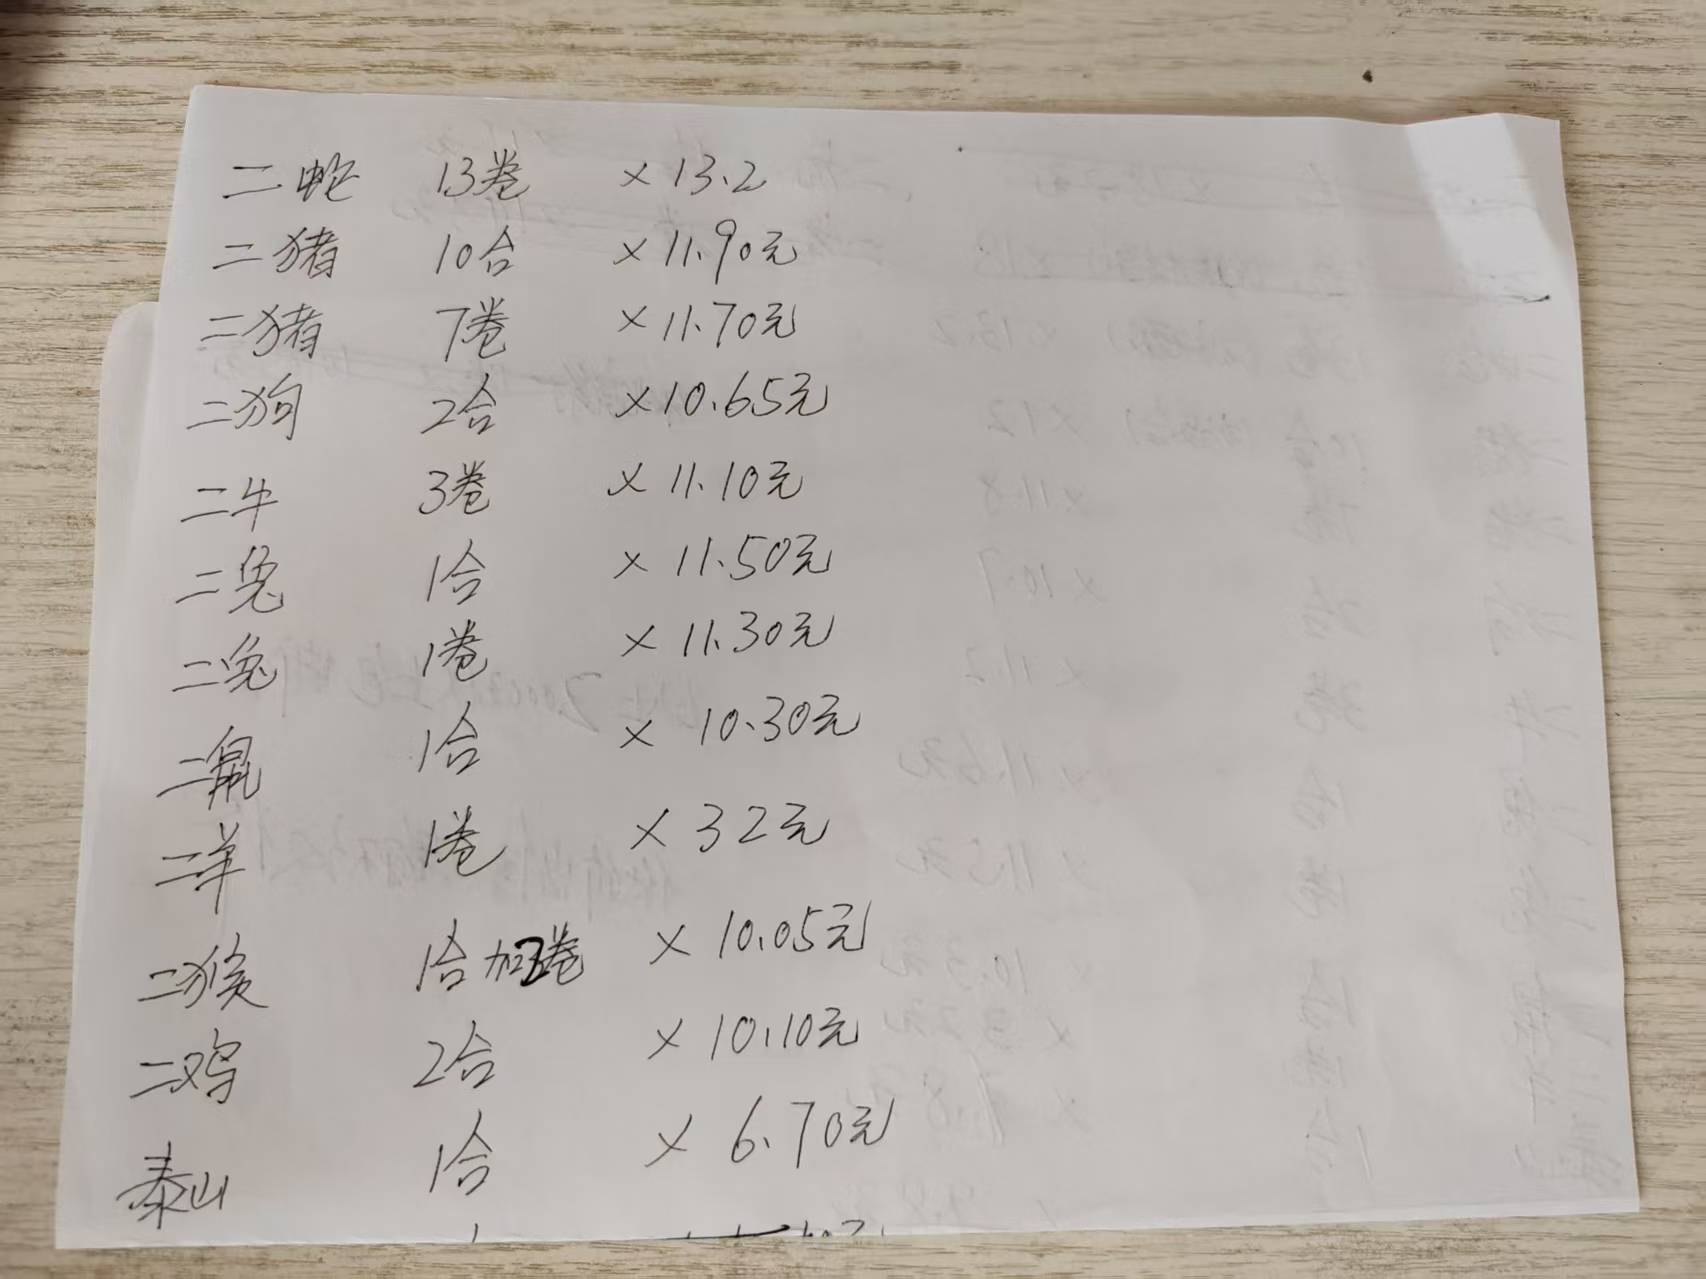 二蛇 13卷 ×13.2
二猪 10合 ×11.90元
二猪 7卷 ×11.70元
二狗 2合 ×10.65元
二牛 3卷 ×11.10元
二兔 1合 ×11.50元
二兔 1卷 ×11.30元
二鼠 1合 × 10.30元
二羊 1卷 × 32元
二猴 1合加3卷 × 10.05元
二鸡 2合 × 10.10元
泰山 1合 × 6.70元